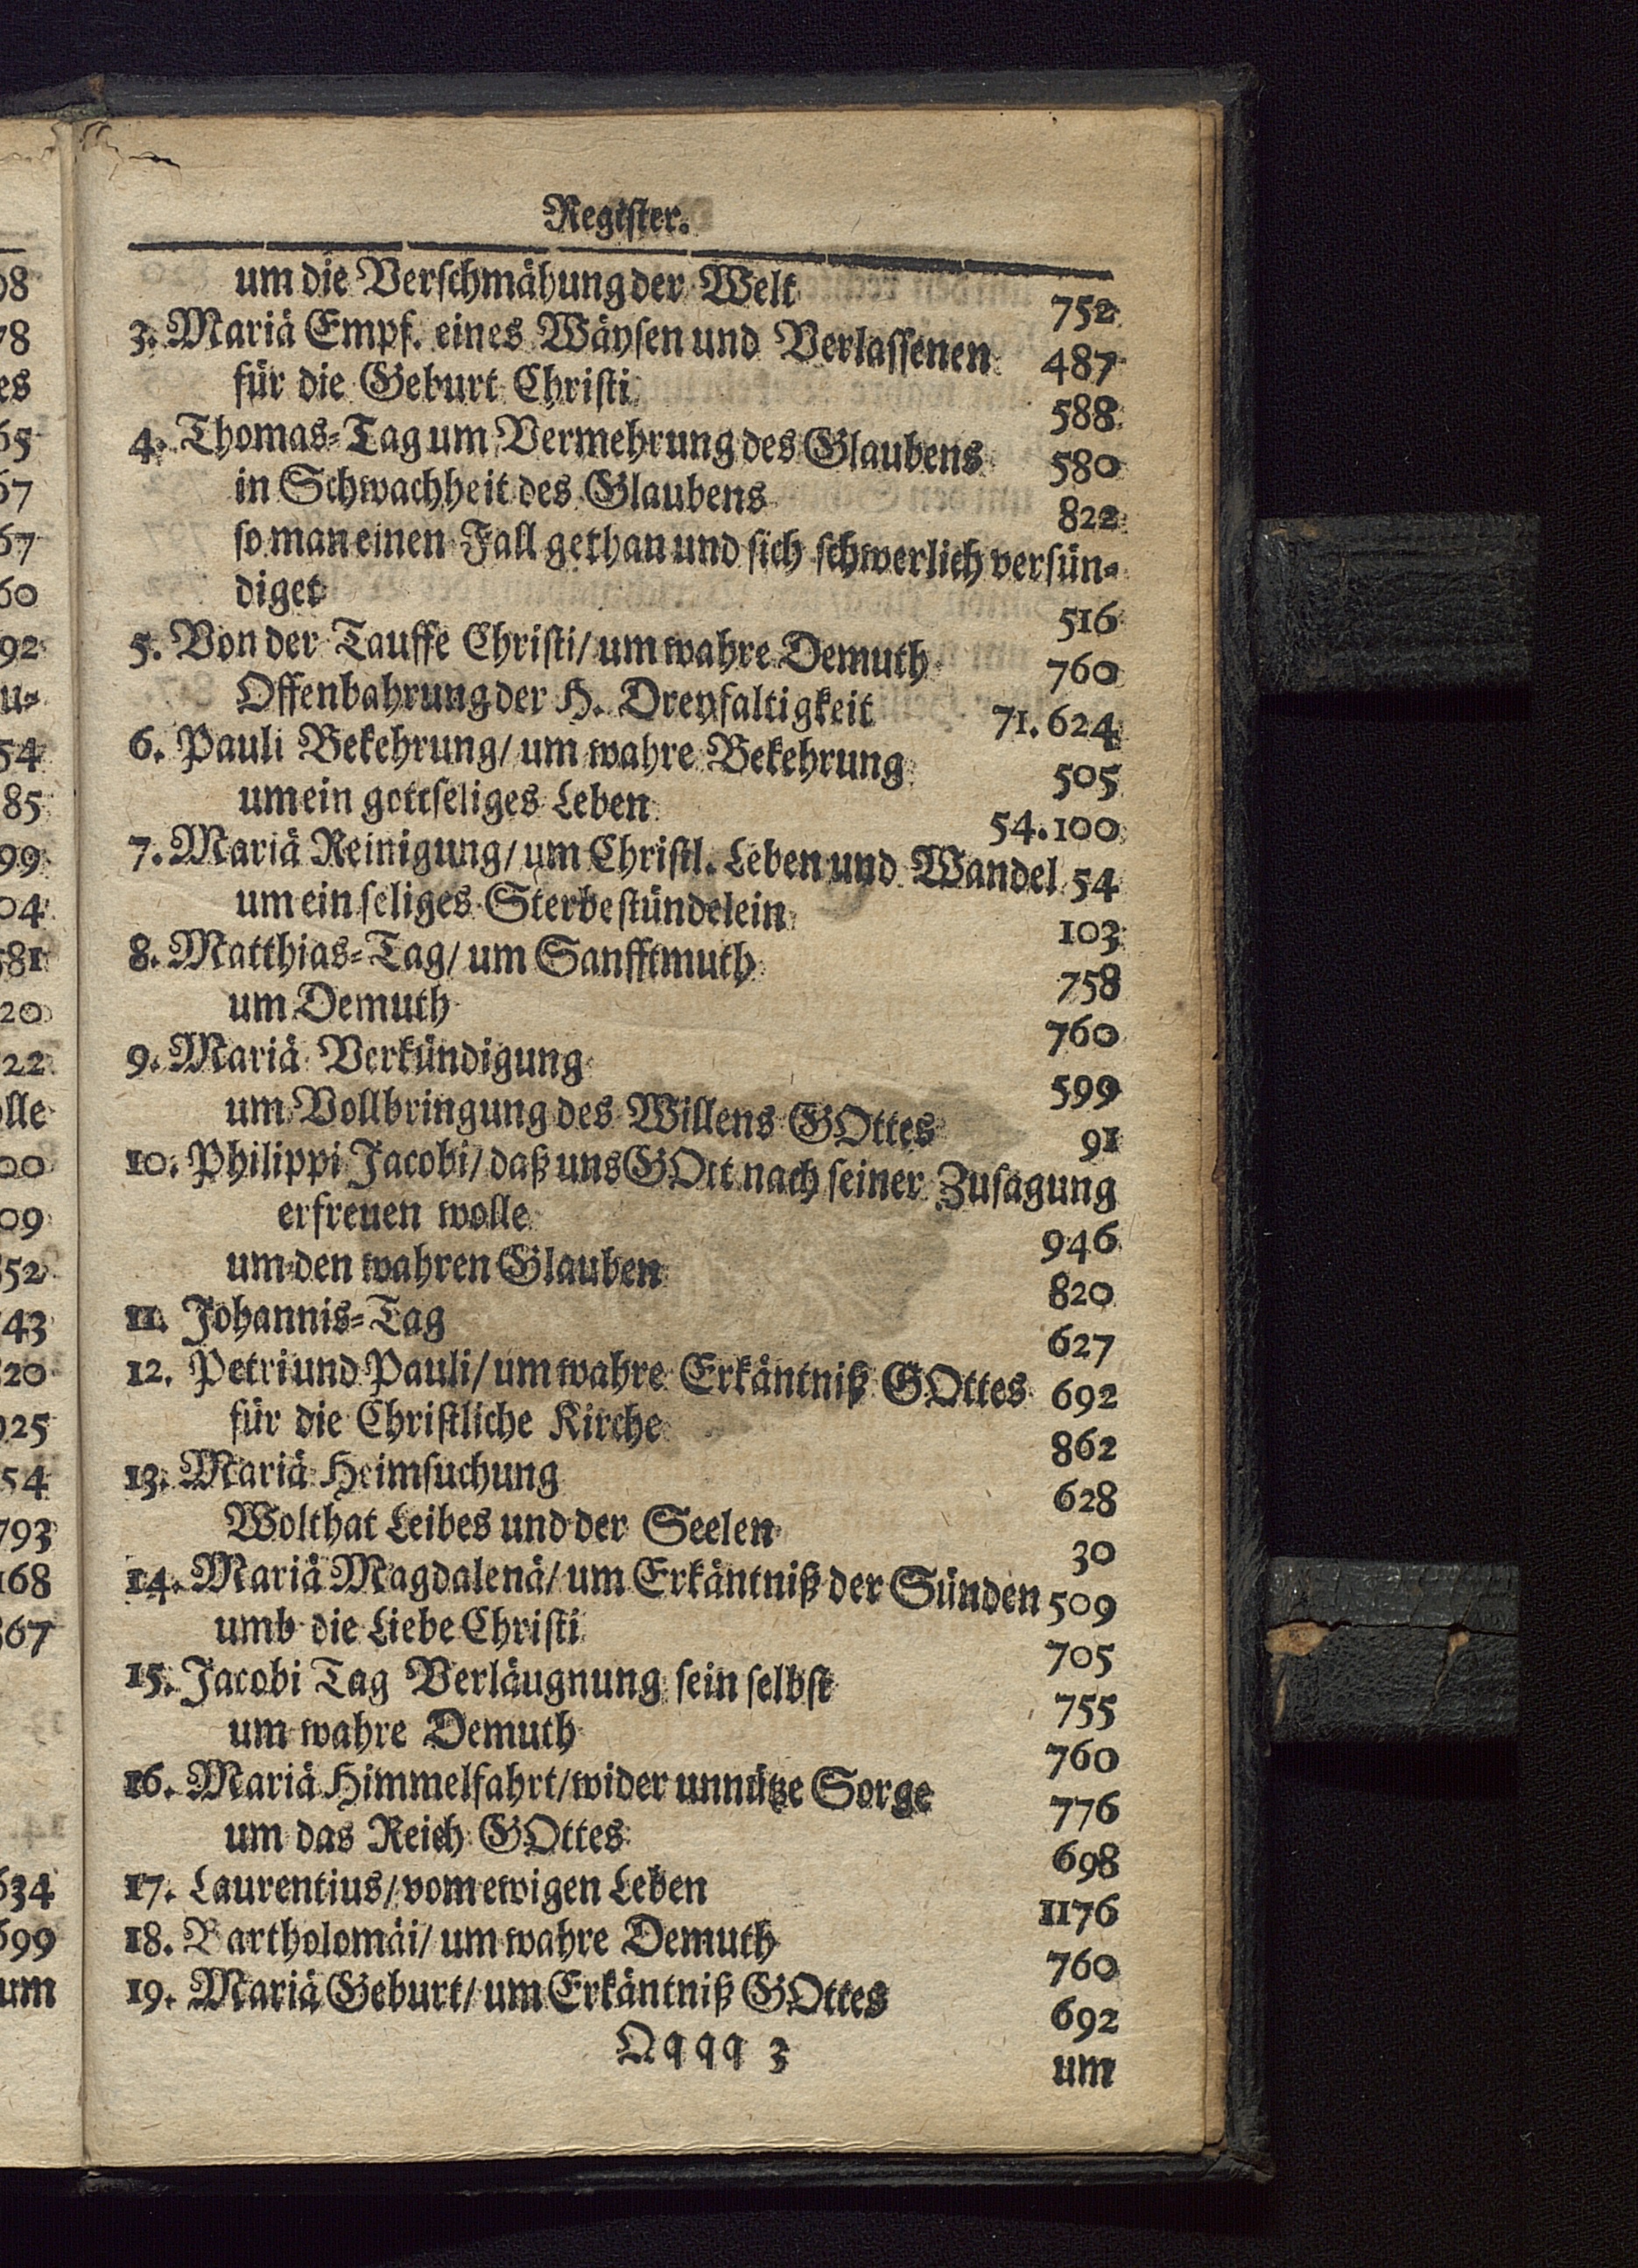 Register.
um die Verschmähung der Welt 752
3. Mariä Empf. eines Wäysen und Verlassenen 487
für die Geburt Christi 588
4. Thomas-Tag um Vermehrung des Glaubens 580
in Schwachheit des Glaubens 822
so man einen Fall gethan und sich schwerlich versün-
diget 516
5. Von der Tauffe Christi/ um wahre Demuth 760
Offenbahrung der H. Dreyfaltigkeit 71. 624
6. Pauli Bekehrung/ um wahre Bekehrung 505
um ein gottseliges Leben 54. 100
7. Mariä Reinigung/ um Christl. Leben und Wandel 54
um ein seliges Sterbestündelein 103
8. Matthias-Tag/ um Sanfftmuth 758
um Demuth 760
9. Mariä Verkündigung 599
um Vollbringung des Willens GOttes 91
10. Philippi Jacobi/ daß uns GOtt nach seiner Zusagung
erfreuen wolle 946
um den wahren Glauben 820
11. Johannis-Tag 627
12. Petri und Pauli/ um wahre Erkäntniß GOttes 692
für die Christliche Kirche 862
13. Mariä Heimsuchung 628
Wolthat Leibes und der Seelen 30
14. Mariä Magdalenä/ um Erkäntniß der Sünden 509
umb die Liebe Christi 705
15. Jacobi Tag Verläugnung sein selbst 755
um wahre Demuth 760
16. Mariä Himmelfahrt/ wider unnütze Sorge 776
um das Reich GOttes 698
17. Laurentius/ vom ewigen Leben 1176
18. Bartholomäi/ um wahre Demuth 760
19. Mariä Geburt/ um Erkäntniß GOttes 692
Qqqq 3 um